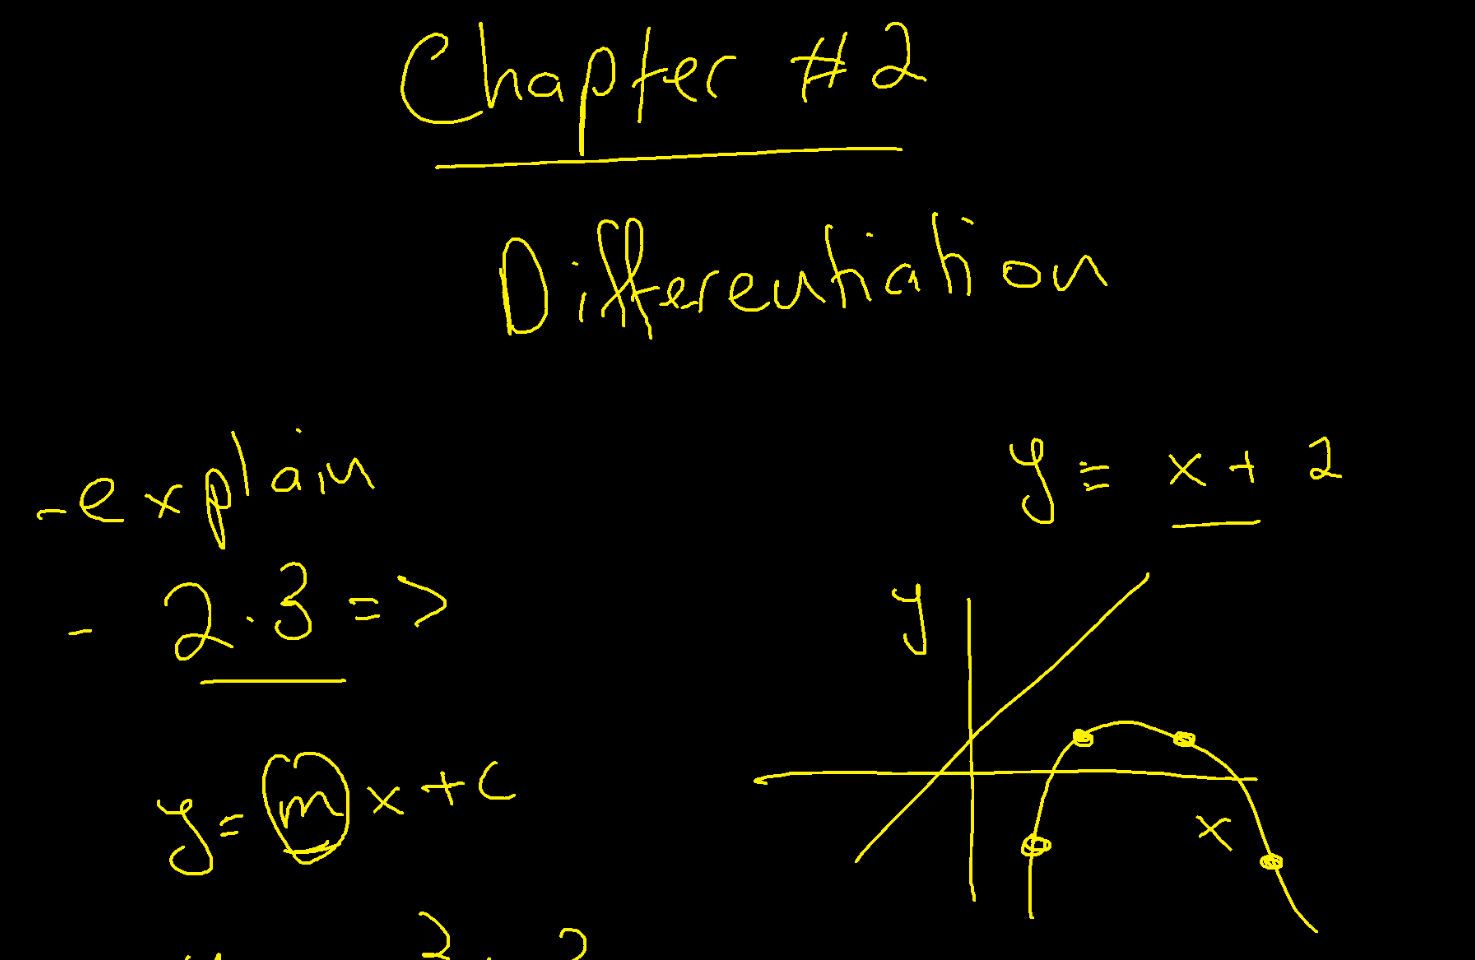 Chapter #2
Differentiation
-explain
- 2.3 =>
y = x + 2
y
x
y = mx + c